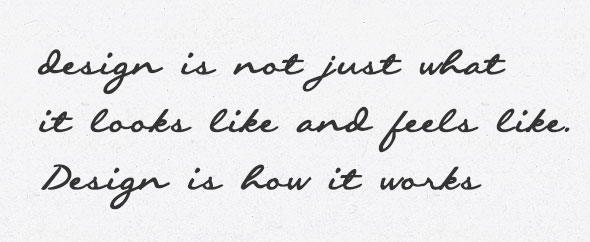 design is not just what
it looks like and feels like.
Design is how it works